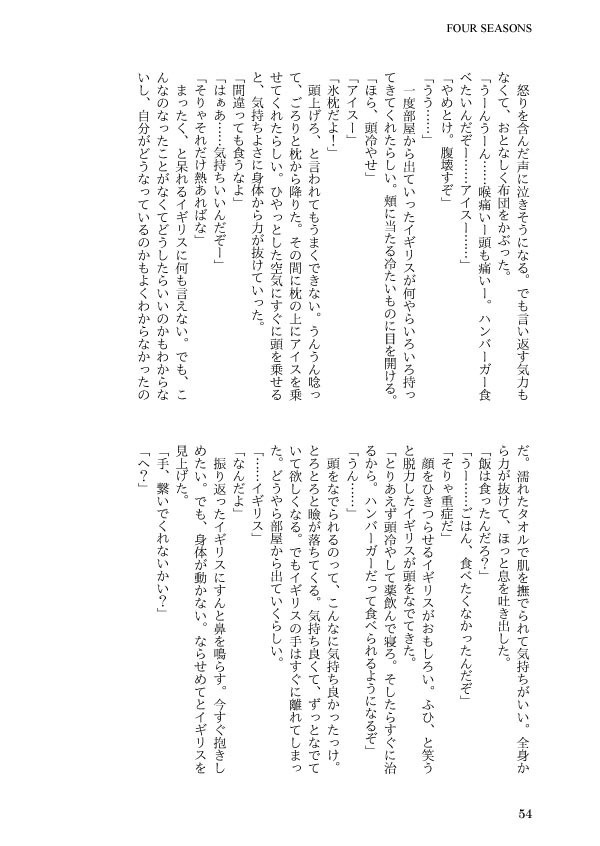 FOUR SEASONS
　怒りを含んだ声に泣きそうになる。でも言い返す気力も
なくて、おとなしく布団をかぶった。
「うーんうーん……喉痛いー頭も痛いー。ハンバーガー食
べたいんだぞー……アイスー……」
「やめとけ。腹壊すぞ」
「うう……」
　一度部屋から出ていったイギリスが何やらいろいろ持っ
てきてくれたらしい。頬に当たる冷たいものに目を開ける。
「ほら、頭冷やせ」
「アイスー」
「氷枕だよ！」
　頭上げろ、と言われてもうまくできない。うんうん唸っ
て、ごろりと枕から降りた。その間に枕の上にアイスを乗
せてくれたらしい。ひやっとした空気にすぐに頭を乗せる
と、気持ちよさに身体から力が抜けていった。
「間違っても食うなよ」
「はぁあ……気持ちいいんだぞー」
「そりゃそれだけ熱あればな」
　まったく、と呆れるイギリスに何も言えない。でも、こ
んなのなったことがなくてどうしたらいいのかもわからな
いし、自分がどうなっているのかもよくわからなかったの
だ。濡れたタオルで肌を撫でられて気持ちがいい。全身か
ら力が抜けて、ほっと息を吐き出した。
「飯は食ったんだろ？」
「うー……ごはん、食べたくなかったんだぞ」
「そりゃ重症だ」
　顔をひきつらせるイギリスがおもしろい。ふひ、と笑う
と脱力したイギリスが頭をなでてきた。
「とりあえず頭冷やして薬飲んで寝ろ。そしたらすぐに治
るから。ハンバーガーだって食べられるようになるぞ」
「うん……」
　頭をなでられるのって、こんなに気持ち良かったっけ。
とろとろと瞼が落ちてくる。気持ち良くて、ずっとなでて
いて欲しくなる。でもイギリスの手はすぐに離れてしまっ
た。どうやら部屋から出ていくらしい。
「……イギリス」
「なんだよ」
　振り返ったイギリスにすんと鼻を鳴らす。今すぐ抱きし
めたい。でも、身体が動かない。ならせめてとイギリスを
見上げた。
「手、繋いでくれないかい？」
「へ？」
54